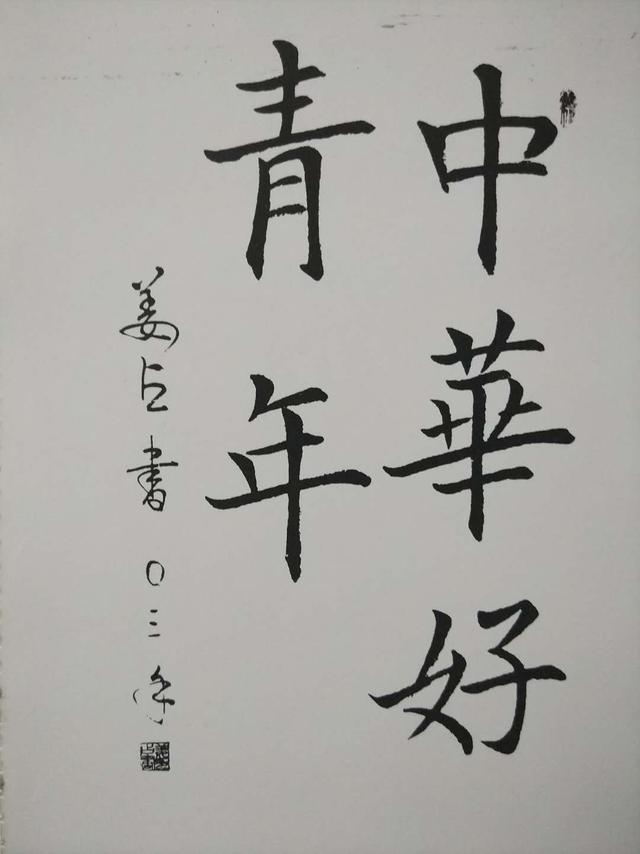 中華好
青年
姜占書 〇三年